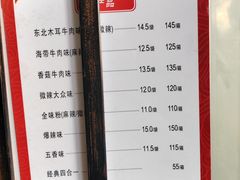 品
东北木耳牛肉味 微辣) 14.5袋 145箱
海带牛肉味(麻辣 12.5袋 125箱
香菇牛肉味 13.5袋 135箱
微辣大众味 12.0袋 120箱
金味粉(麻辣/微 11.0袋 110箱
爆辣味 15.0袋 150箱
五香味 11.5袋 115箱
经典四合一 55箱